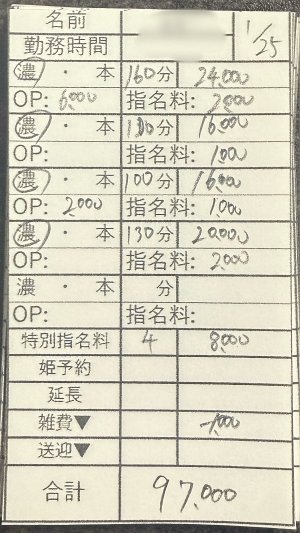 名前 1/25
勤務時間
濃 ・ 本 160分 24,000
OP: 6,000 指名料: 2,000
濃 ・ 本 100分 16,000
OP: 指名料: 1,000
濃 ・ 本 100分 16,000
OP: 2,000 指名料: 1,000
濃 ・ 本 130分 20,000
OP: 指名料: 2,000
濃 ・ 本 分
OP: 指名料:
特別指名料 4 8,000
姫予約
延長
雑費▼ -1,000
送迎▼
合計 97,000